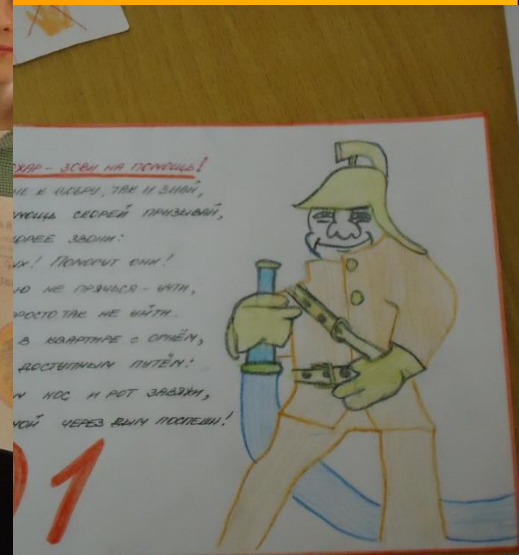 ЖАР - ЗОВИ НА ПОМОЩЬ!
НЕ К ДОБРУ, ТАК И ЗНАЙ,
МОЩЬ СКОРЕЙ ПРИЗЫВАЙ,
ОРЕЕ ЗВОНИ:
ИХ! ПОМОГУТ ОНИ!
Ю НЕ ПРЯЧЬСЯ - УЧТИ,
РОСТО ТАК НЕ УЙТИ.
В КВАРТИРЕ С ОГНЁМ,
ДОСТУПНЫМ ПУТЁМ:
М НОС И РОТ ЗАВЯЖИ,
НОЙ ЧЕРЕЗ ДЫМ ПОСПЕШИ!
01